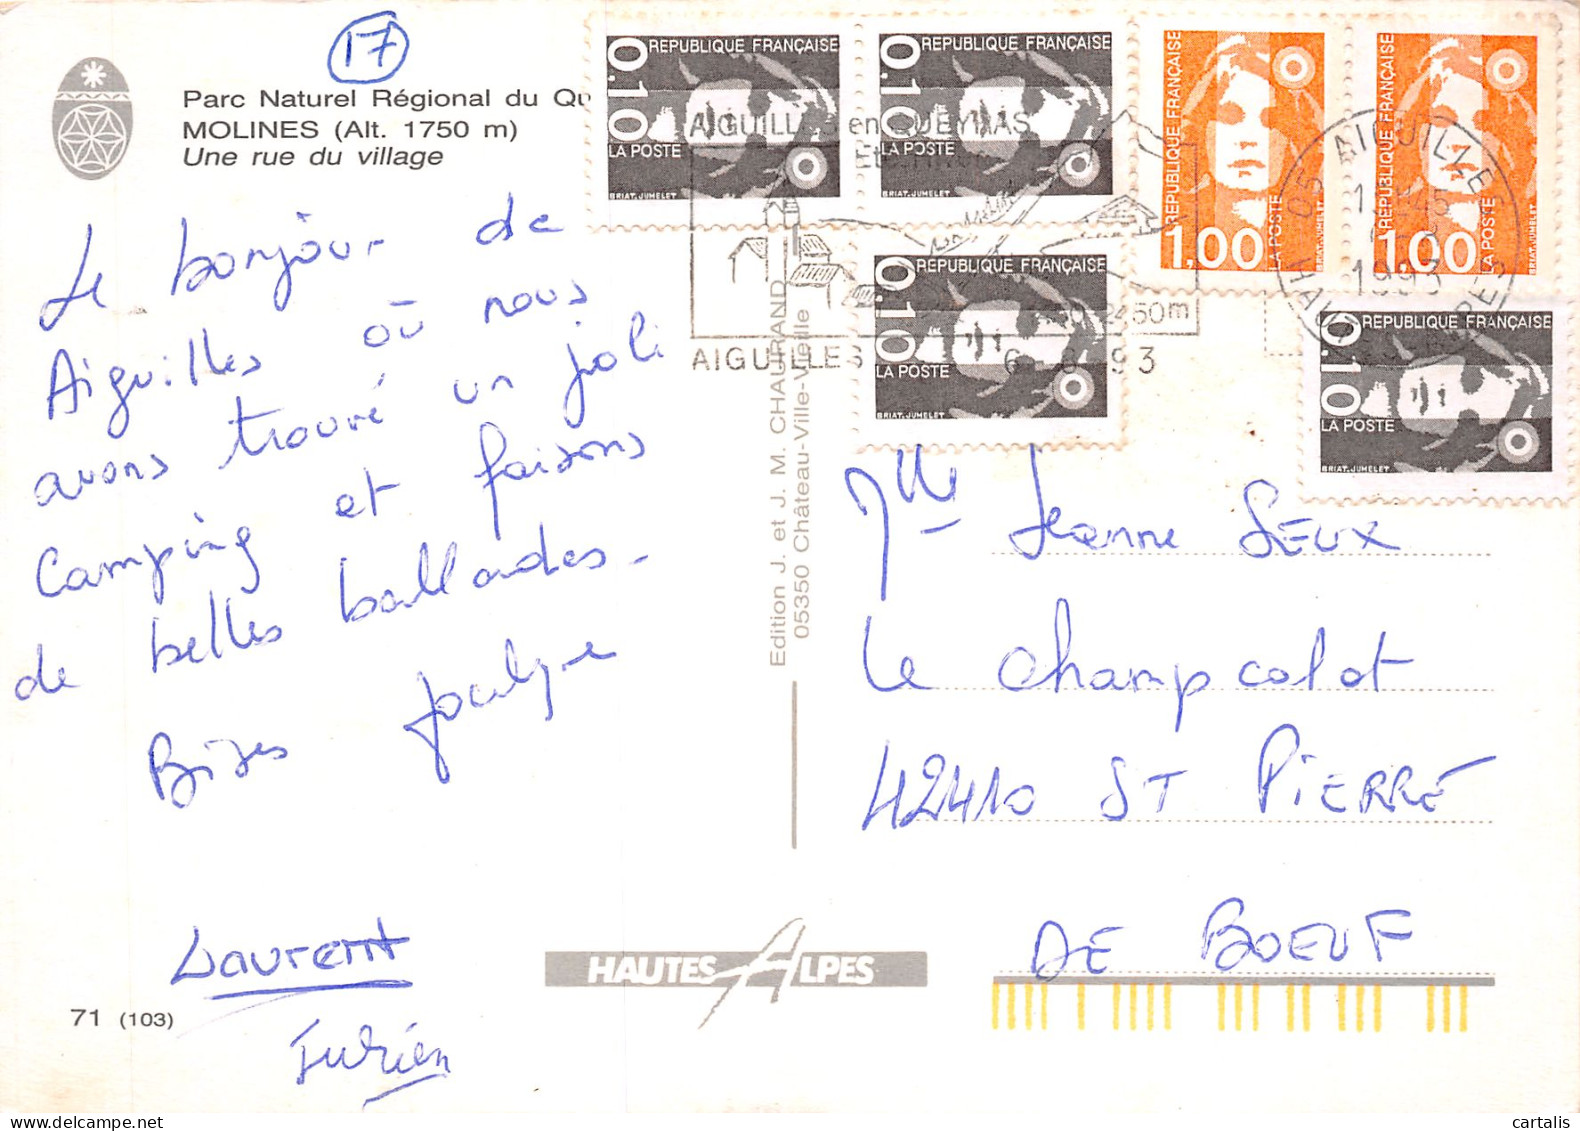 17
Parc Naturel Régional du Qu
MOLINES (Alt. 1750 m)
Une rue du village
Le bonjour de
Aiguilles où nous
avons trouvé un joli
camping et faisons
de belles ballades.
Bises
Laurent
Julien
71 (103)
Edition J. et J. M. CHAURAND
05350 Château-Ville-Vieille
HAUTES ALPES
0,10 REPUBLIQUE FRANÇAISE
LA POSTE
BRIAT.JUMELET
0,10 REPUBLIQUE FRANÇAISE
LA POSTE
BRIAT.JUMELET
REPUBLIQUE FRANÇAISE
1,00
LA POSTE
BRIAT.JUMELET
REPUBLIQUE FRANÇAISE
1,00
LA POSTE
0,10 REPUBLIQUE FRANÇAISE
LA POSTE
BRIAT.JUMELET
0,10 REPUBLIQUE FRANÇAISE
LA POSTE
BRIAT.JUMELET
AIGUILLES en QUEYRAS
2450m
AIGUILLES
93
05 AIGUILLES
1993
HAUTES
Mlle Jeanne SEUX
Le Champcolot
42410 ST PIERRE
DE BOEUF
cartalis